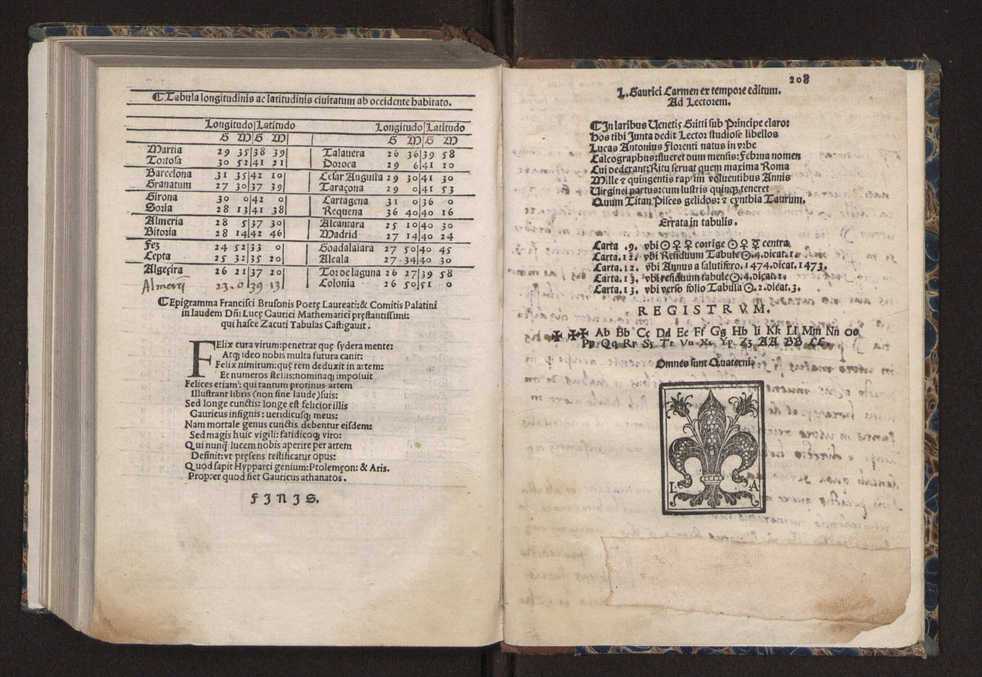 Tabula longitudinis ac latitudinis ciuitatum ab occidente habitato.
Longitudo Latitudo Longitudo Latitudo
G M G M G M G M
Martia 29 35 38 39 Talauera 26 36 39 58
Tortosa 30 52 41 21 Doroca 29 6 41 10
Barcelona 31 35 42 10 Cesar Auguśta 29 30 41 30
Granatum 27 30 37 39 Taraçona 29 0 41 53
Girona 30 0 42 0 Cartagena 31 0 36 0
Soria 28 13 41 38 Requena 36 40 40 16
Almeria 28 5 37 30 Alcantara 25 10 40 30
Bitoria 28 14 42 46 Madrid 27 14 40 24
Fez 24 52 33 0 Goadalaiara 27 50 40 45
Cepta 25 32 35 20 Alcala 27 34 40 30
Algesira 26 21 37 20 Tordelaguna 26 27 39 58
23.0 39 13 Colonia 26 50 51 0
Epigramma Francisci Brusonis Poetę Laureati: & Comitis Palatini
in laudem Dñi Lucę Gaurici Mathematici pręstantissimi:
qui hasce Zacuti Tabulas Castigauit.
FElix cura virum: penetrat que sydera mente:
Atq; ideo nobis multa futura canit:
Felix nimirum: quę rem deduxit in artem:
Et numeros stellis: nominaq; imposuit
Felices etiam: qui tantum protinus artem
Illustrant libris (non sine laude) suis:
Sed longe cunctis: longe est felicior illis
Gauricus insignis: ueridicusq; meus:
Nam mortale genus cunctis debentur eisdem:
Sed magis huic vigili: fatidicoq; viro:
Qui nunq̃ lucem nobis aperire per artem
Definit: ve pręsens testificatur opus:
Quod sapit Hypparci genium: Ptolemęon: & Aris.
Propter quod fiet Gauricus athanatos.
FINIS.
208
L. Gaurici Carmen ex tempore editum.
Ad Lectorem.
In laribus Uenetis Gritti sub Principe claro:
Hos tibi Junta dedit Lector studiose libellos
Lucas Antonius Florenti natus in vrbe
Calcographus: flueret dum mensis: Februa nomen
Cui dederant: Ritu seruat quem maxima Roma
Mille & quingentis rapiũ voluentibus Annis
Virginei partus: cum lustris quinq; teneret
Quum Titan Pisces gelidos: & cynthia Taurum.
Errata in tabulis.
Carta .9. vbi ☉ ☿ ♀ corrige ☉ ♀ ☿ centra
Carta .12. vbi Residuum Tabule ☉.4. dicat.1.
Carta .12. vbi Annus a salutifero.1474. dicat.1473.
Carta .13. vbi residuum tabule ☉.4. dicat.
Carta .13. vbi verso folio Tabula ☉.2. dicat.3.
REGISTRVM.
✠ ✠✠ Ab Bb Cc Dd Ee Ff Gg Hh Ii Kk Ll Mm Nn Oo
Pp Qq Rr Sſ Tt Vu Xx Yy Zz AA BB CC.
Omnes sunt Quaterni.
L A